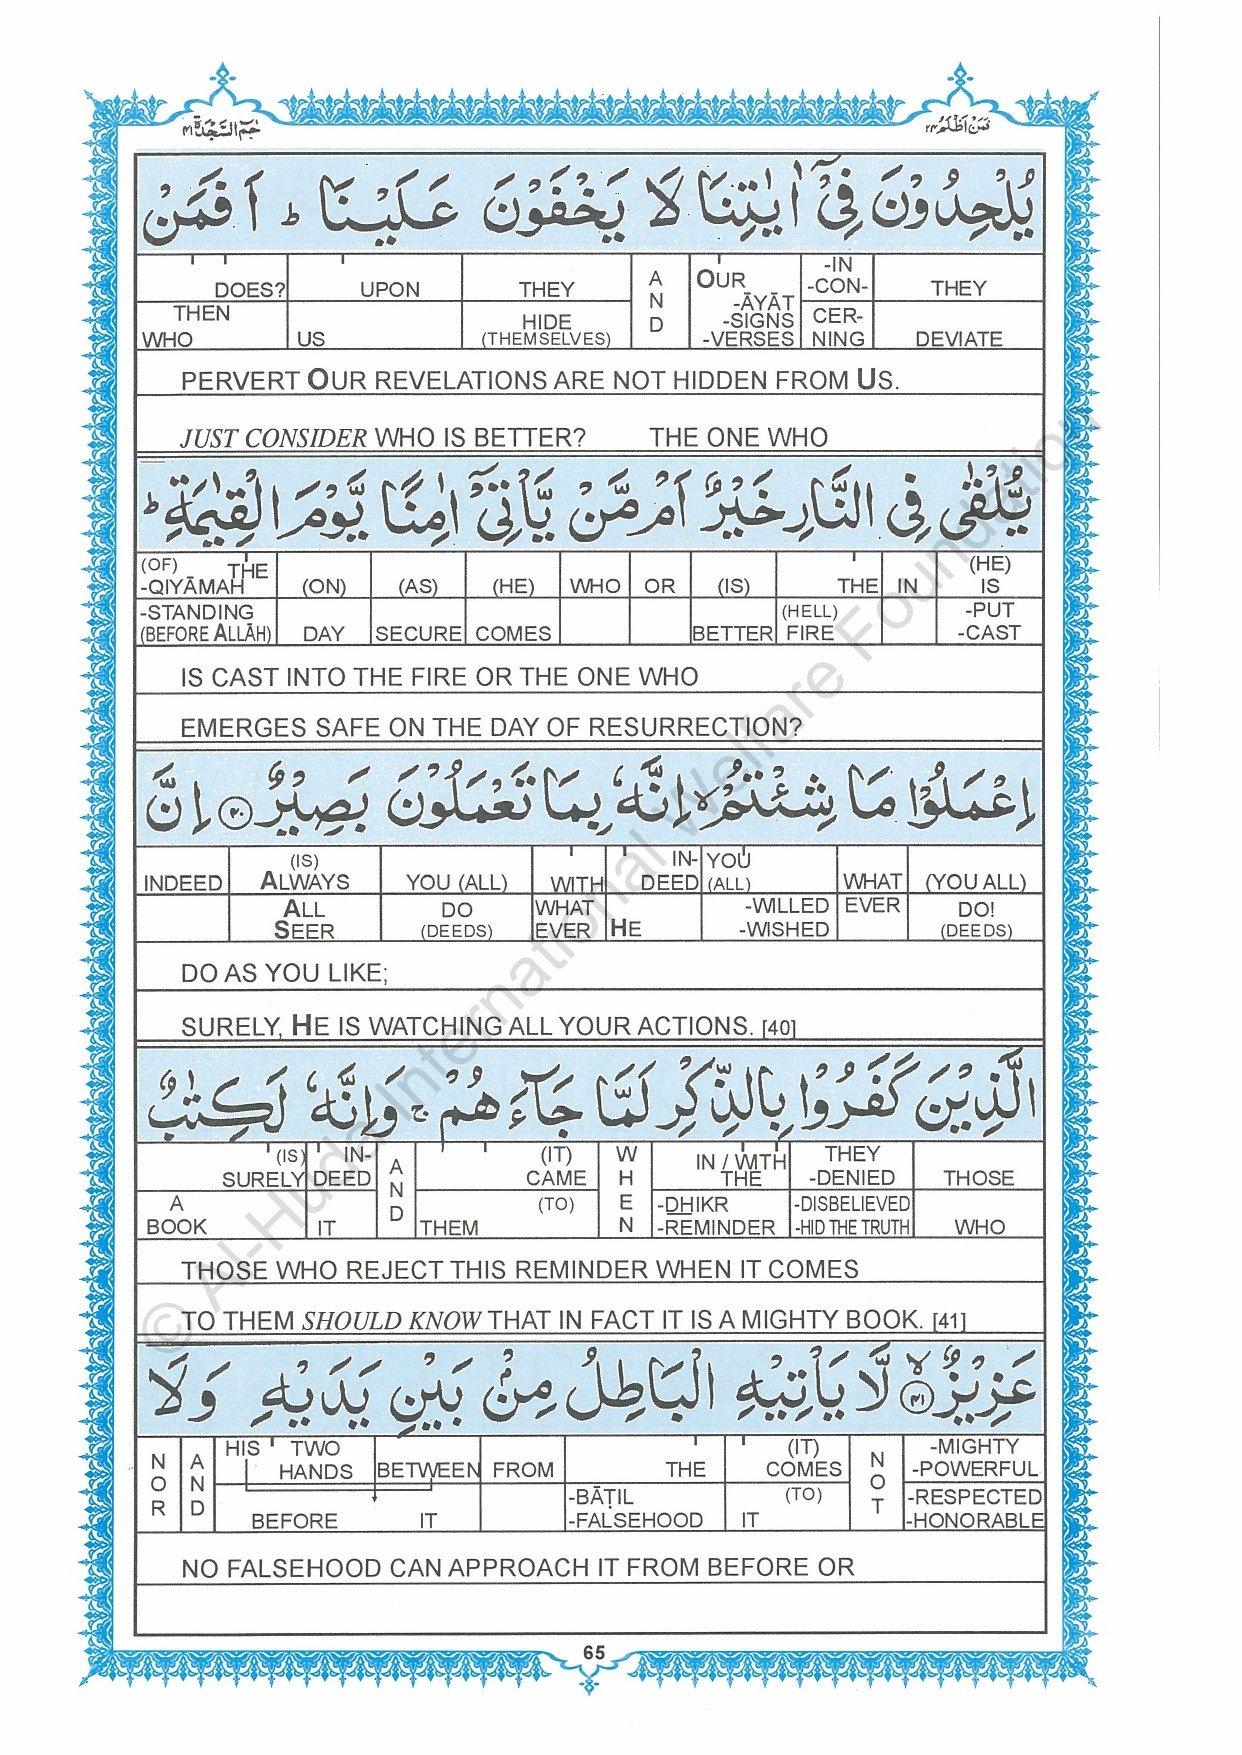 حٰمٓ السَّجْدَة ٤١ فَمَنْ اَظْلَمُ ٢٤
يُلْحِدُوْنَ فِىْٓ اٰيٰتِنَا لَا يَخْفَوْنَ عَلَيْنَا ؕ اَ فَمَنْ
DOES? UPON THEY AND OUR -ĀYĀT -SIGNS -VERSES -IN -CON- CER- NING THEY
THEN WHO US HIDE (THEMSELVES) DEVIATE
PERVERT OUR REVELATIONS ARE NOT HIDDEN FROM US.
JUST CONSIDER WHO IS BETTER? THE ONE WHO
يُّلْقٰى فِى النَّارِ خَيْرٌ اَمْ مَّنْ يَّاْتِىْٓ اٰمِنًا يَّوْمَ الْقِيٰمَةِ ؕ
(OF) THE -QIYĀMAH (ON) (AS) (HE) WHO OR (IS) THE IN (HE) IS
-STANDING (BEFORE ALLĀH) DAY SECURE COMES BETTER (HELL) FIRE -PUT -CAST
IS CAST INTO THE FIRE OR THE ONE WHO
EMERGES SAFE ON THE DAY OF RESURRECTION?
اِعْمَلُوْا مَا شِئْتُمْ ۙ اِنَّهٗ بِمَا تَعْمَلُوْنَ بَصِيْرٌ ﴿٤٠﴾ اِنَّ
INDEED (IS) ALWAYS YOU (ALL) WITH IN- DEED YOU (ALL) WHAT (YOU ALL)
ALL SEER DO (DEEDS) WHAT EVER HE -WILLED -WISHED EVER DO! (DEEDS)
DO AS YOU LIKE;
SURELY, HE IS WATCHING ALL YOUR ACTIONS. [40]
الَّذِيْنَ كَفَرُوْا بِالذِّكْرِ لَمَّا جَآءَ هُمْ ۚ وَاِنَّهٗ لَكِتٰبٌ
(IS) SURELY IN- DEED AND (IT) CAME WHEN IN / WITH THE THEY -DENIED THOSE
A BOOK IT THEM (TO) -DHIKR -REMINDER -DISBELIEVED -HID THE TRUTH WHO
THOSE WHO REJECT THIS REMINDER WHEN IT COMES
TO THEM SHOULD KNOW THAT IN FACT IT IS A MIGHTY BOOK. [41]
عَزِيْزٌ ۙ﴿٤١﴾ لَّا يَاْتِيْهِ الْبَاطِلُ مِنْۢ بَيْنِ يَدَيْهِ وَلَا
NOR AND HIS TWO HANDS BETWEEN FROM THE (IT) COMES NOT -MIGHTY -POWERFUL
BEFORE IT -BĀṬIL -FALSEHOOD IT (TO) -RESPECTED -HONORABLE
NO FALSEHOOD CAN APPROACH IT FROM BEFORE OR
65
© Al-Huda International Welfare Foundation